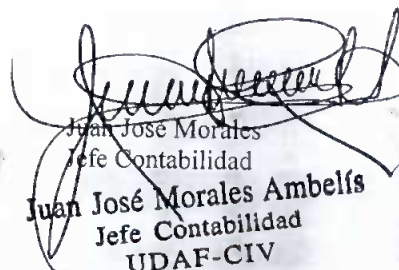 Juan José Morales
Jefe Contabilidad
Juan José Morales Ambelís
Jefe Contabilidad
UDAF-CIV